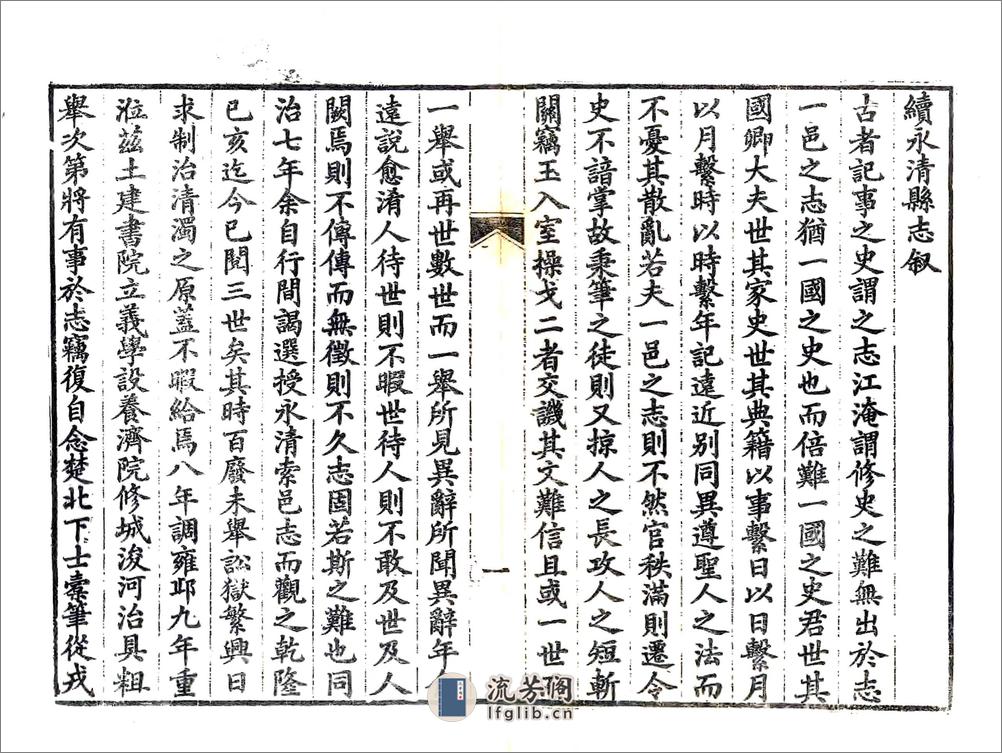 續永清縣志叙
古者記事之史謂之志江淹謂修史之難無出於志
一邑之志猶一國之史也而倍難一國之史君世其
國卿大夫世其家史世其典籍以事繫日以日繫月
以月繫時以時繫年記遠近別同異遵聖人之法而
不憂其散亂若夫一邑之志則不然官秩滿則遷令
史不諳掌故秉筆之徒則又掠人之長攻人之短斬
關竊玉入室操戈二者交譏其文難信且或一世
一
一舉或再世數世而一舉所見異辭所聞異辭年
遠說愈淆人待世則不暇世待人則不敢及世及人
闕焉則不傳傳而無徵則不久志固若斯之難也同
治七年余自行間謁選授永清索邑志而觀之乾隆
己亥迄今已閱三世矣其時百廢未舉訟獄繁興日
求制治清濁之原蓋不暇給焉八年調雍邱九年重
涖茲土建書院立義學設養濟院修城浚河治具粗
舉次第將有事於志竊復自念楚北下士橐筆從戎
流芳阁
lfglib.cn